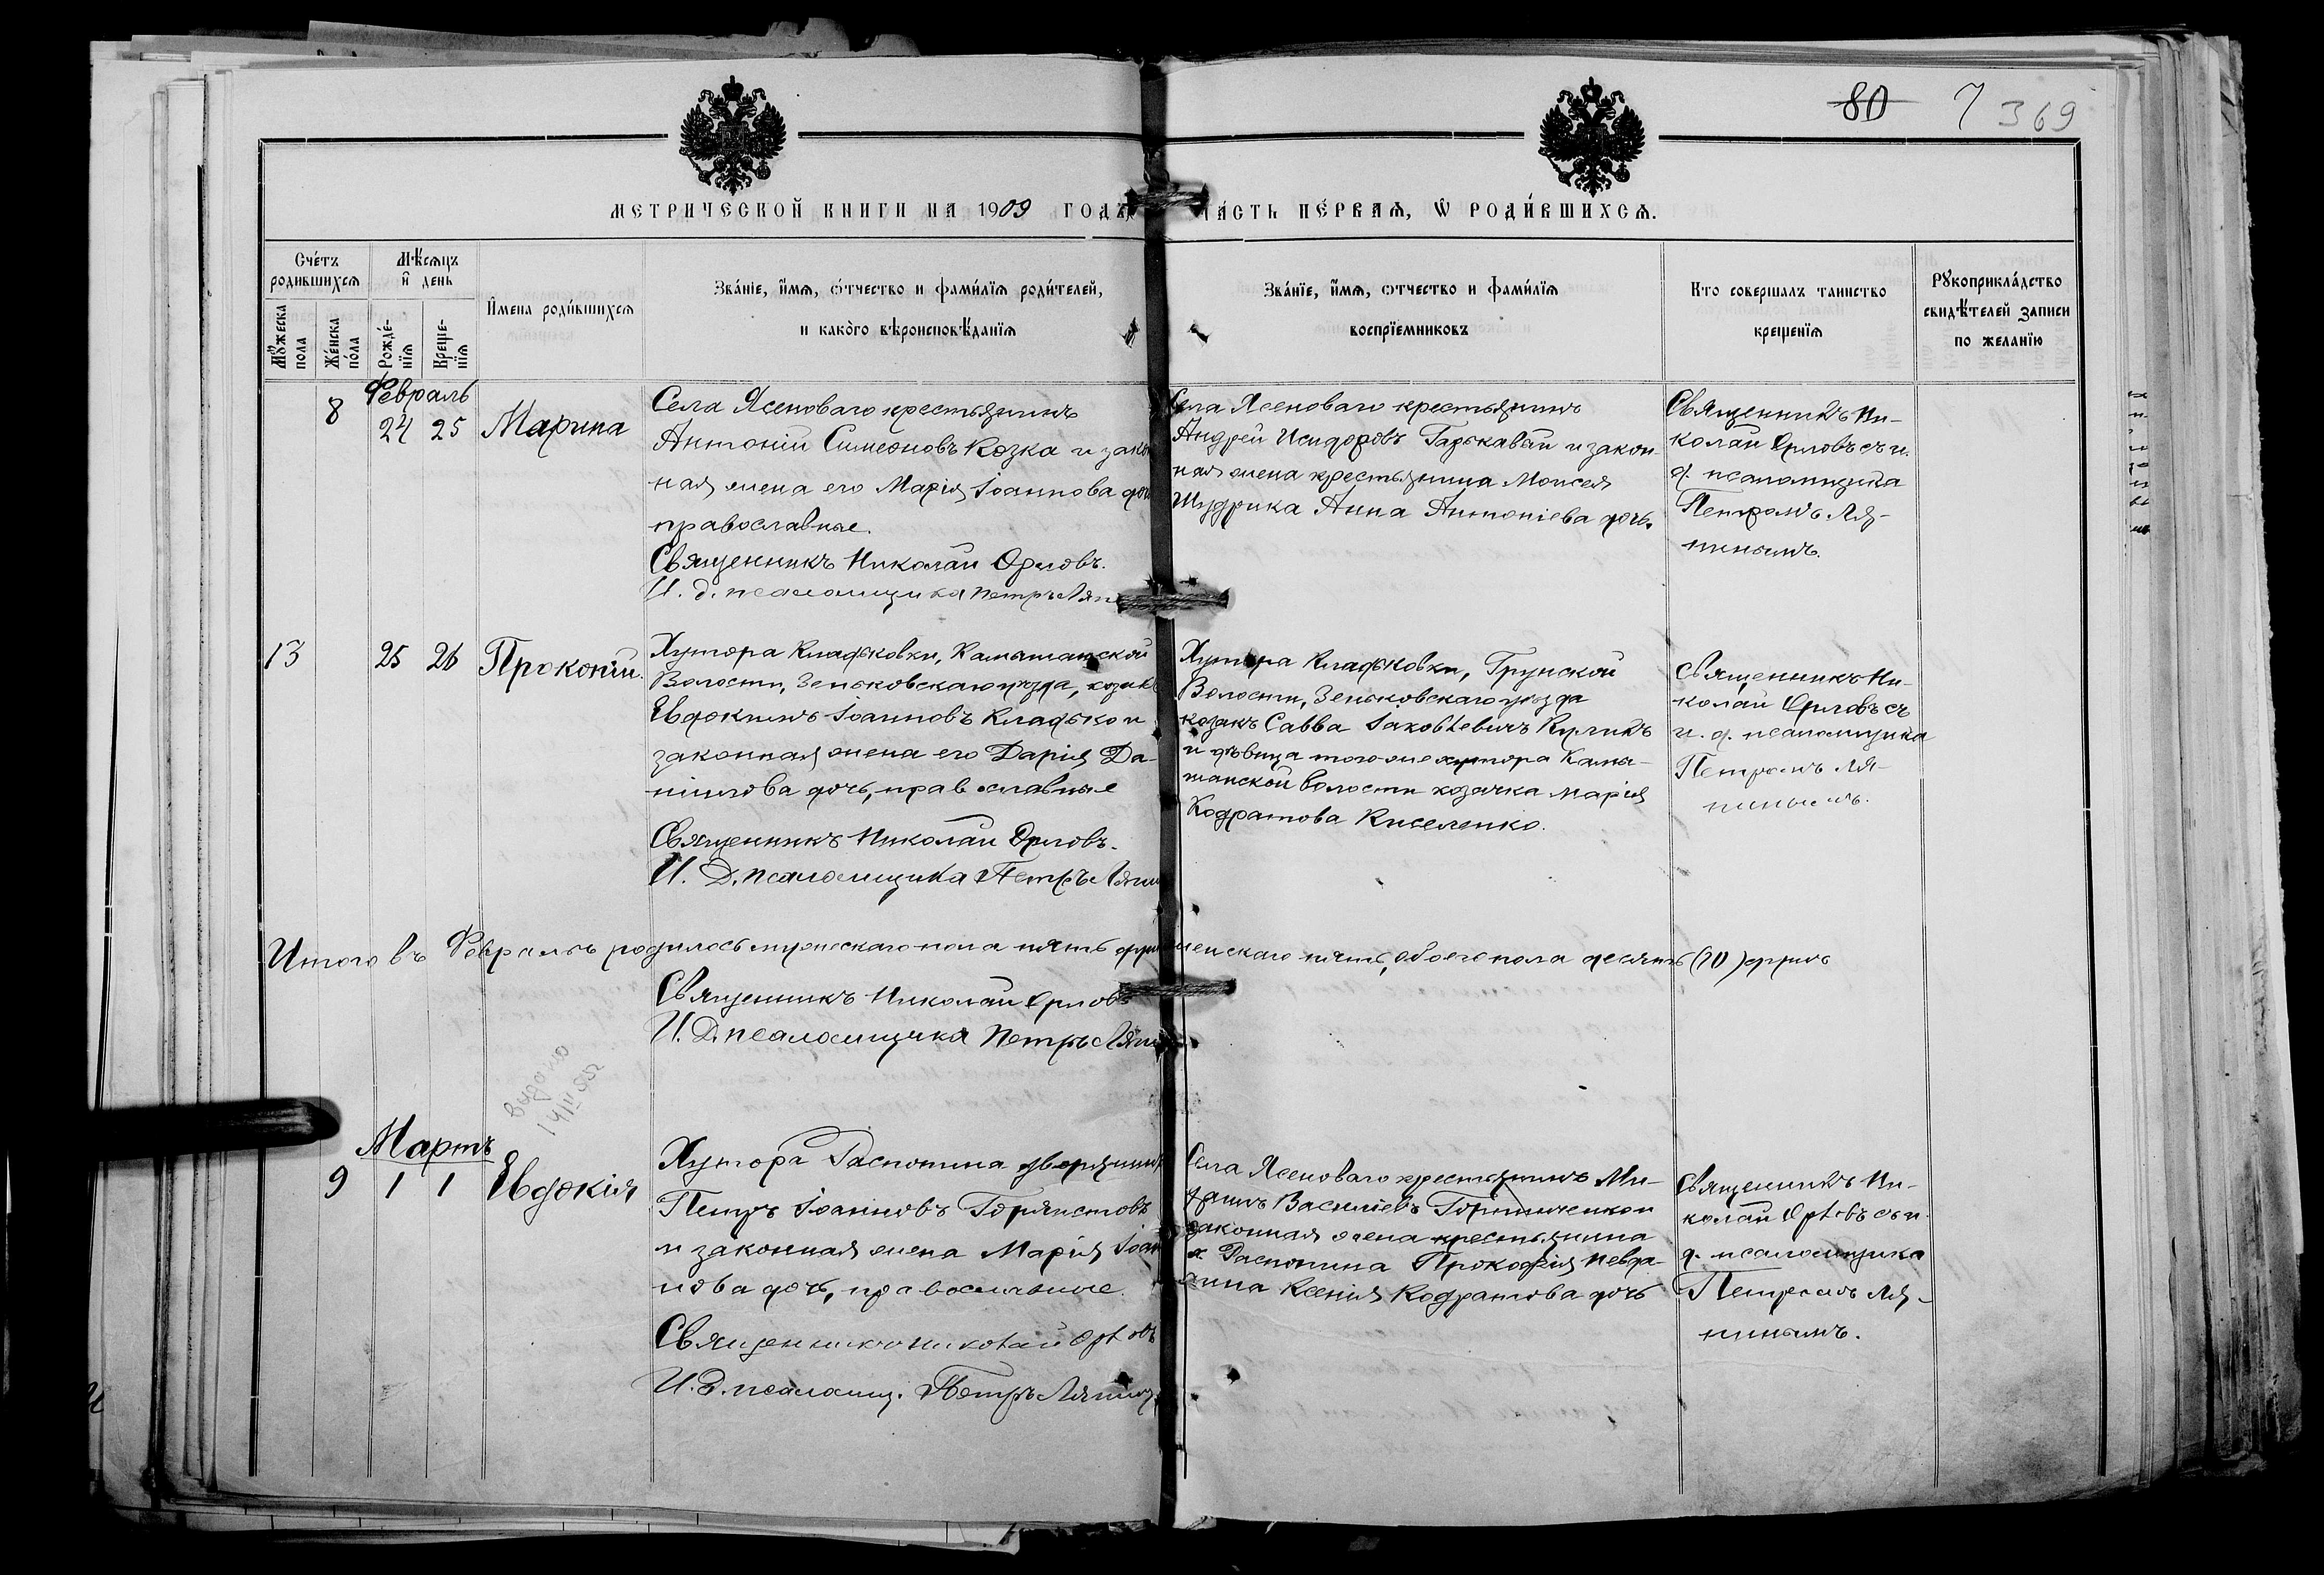 80 7 369
МЕТРИЧЕСКОЙ КНИГИ НА 1909 ГОДЪ, ЧА́СТЬ ПЕ́РВАѦ, Ѡ РОДИ́ВШИХСѦ.
Сче́тъ родившихсѧ
Мѣ́сѧцъ и҆ день
Мꙋжеска пола
Же́нска по́ла
Рожде́-нїѧ
Креще-нїѧ
И҆мена роди́вшихсѧ
Зва́нїе, и҆́мѧ, ѻ҆́тчество и фами́лїѧ роди́телей,
и како́го вѣроисповѣ́данїѧ
Зва́нїе, и҆́мѧ, ѻтчество и фами́лїѧ
воспрїемниковъ
Кто совершалъ таинство
крещенїѧ
Рꙋкоприкла́дство
свидѣ́телей записи
по жела́нїю
Февраль
8 24 25 Марина
Села Ясеноваго крестьянинъ
Антоній Симеоновъ Козка и закон
ная жена его Марія Іоаннова дочь
православные.
Священникъ Николай Орловъ.
И. д. псаломщика Петръ Ляп
Села Ясеноваго крестьянинъ
Андрей Исидоровъ Гаркавый и закон-
ная жена крестьянина Моисея
Шудрика Анна Антоніева дочь.
Священникъ Ни-
колай Орловъ съ и.
д. псаломщика
Петромъ Ля-
пинымъ.
13 25 26 Прокопій.
Хутора Кладьковки, Камышанской
Волости, Зеньковскаго уѣзда, козакъ
Евдокимъ Іоанновъ Кладько и
законная жена его Дарія Да-
ніилова дочь, православные
Священникъ Николай Орловъ.
И. Д. псаломщика Петръ Ляпин
Хутора Кладьковки, Грунской
Волости, Зеньковскаго уѣзда
козакъ Савва Іаковлевичъ Куликъ
и дѣвица того же хутора Камы-
шанской волости козачка Марія
Кодратова Киселенко.
Священникъ Ни-
колай Орловъ съ
и. д. псаломщика
Петромъ Ля-
пинымъ.
Итого въ Февралѣ родилось мужескаго пола пять душъ женскаго пять, обоего пола десять (10) душъ
Священникъ Николай Орловъ
И. Д. псаломщика Петръ Ляпин
видано
14/II 952
Мартъ
9 1 1 Евдокія
Хутора Распопина дворянинъ
Петръ Іоанновъ Горпистовъ
и законная жена Марія Іоан
нова дочь, православные.
Священникъ Николай Орловъ
И. Д. псаломщ. Петръ Ляпин
Села Ясеноваго крестьянинъ Ми-
Василіевъ
законная жена крестьянина
х. Распопина Прокофія
Ксенія Кодратова дочь
Священникъ Ни-
колай Орловъ съ и.
д. псаломщика
Петромъ Ля-
пинымъ.